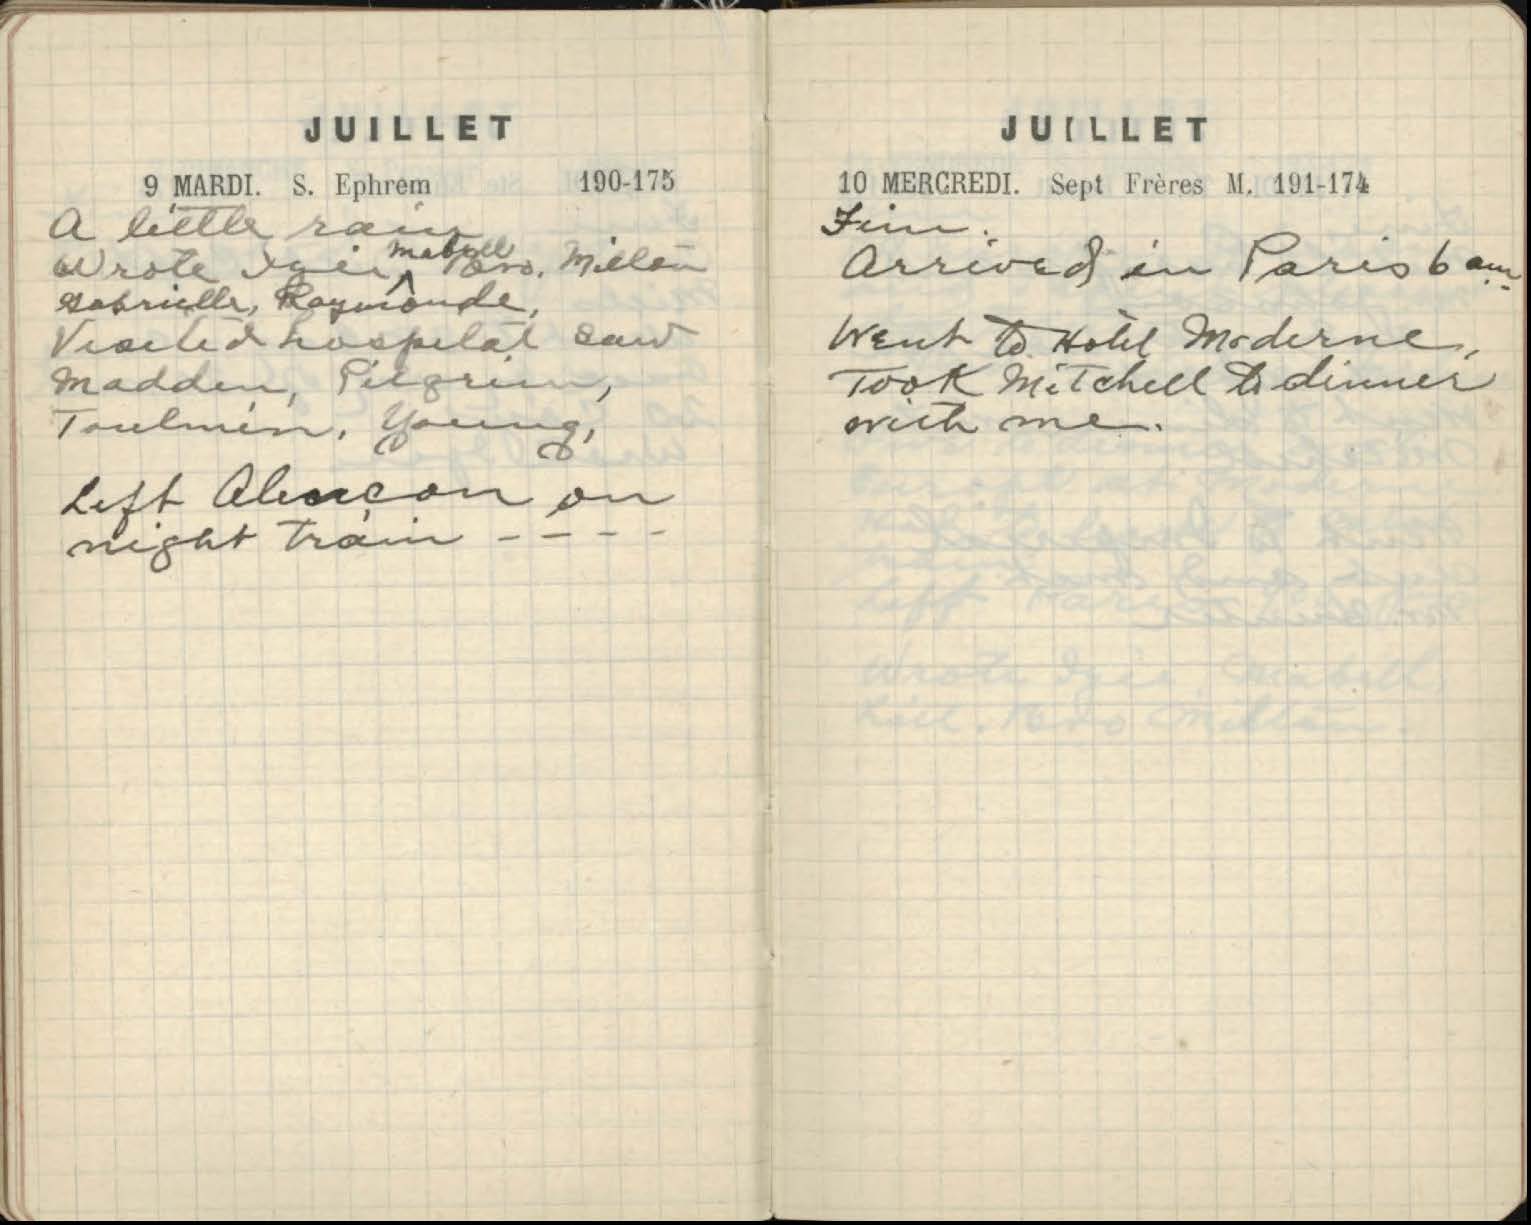 JUILLET
9 MARDI. S. Ephrem 190-175
A little rain
Wrote Izzie, Mabell Bro. Milton
Gabrielle, Raymonde,
Visited hospital saw
Madden, Pilgrim,
Toulmin, Young,
Left Alencon on
night train - - - -
JUILLET
10 MERCREDI. Sept Frères M. 191-174
Fine.
Arrived in Paris 6 am
Went to Hotel Moderne,
Took Mitchell to dinner
with me.